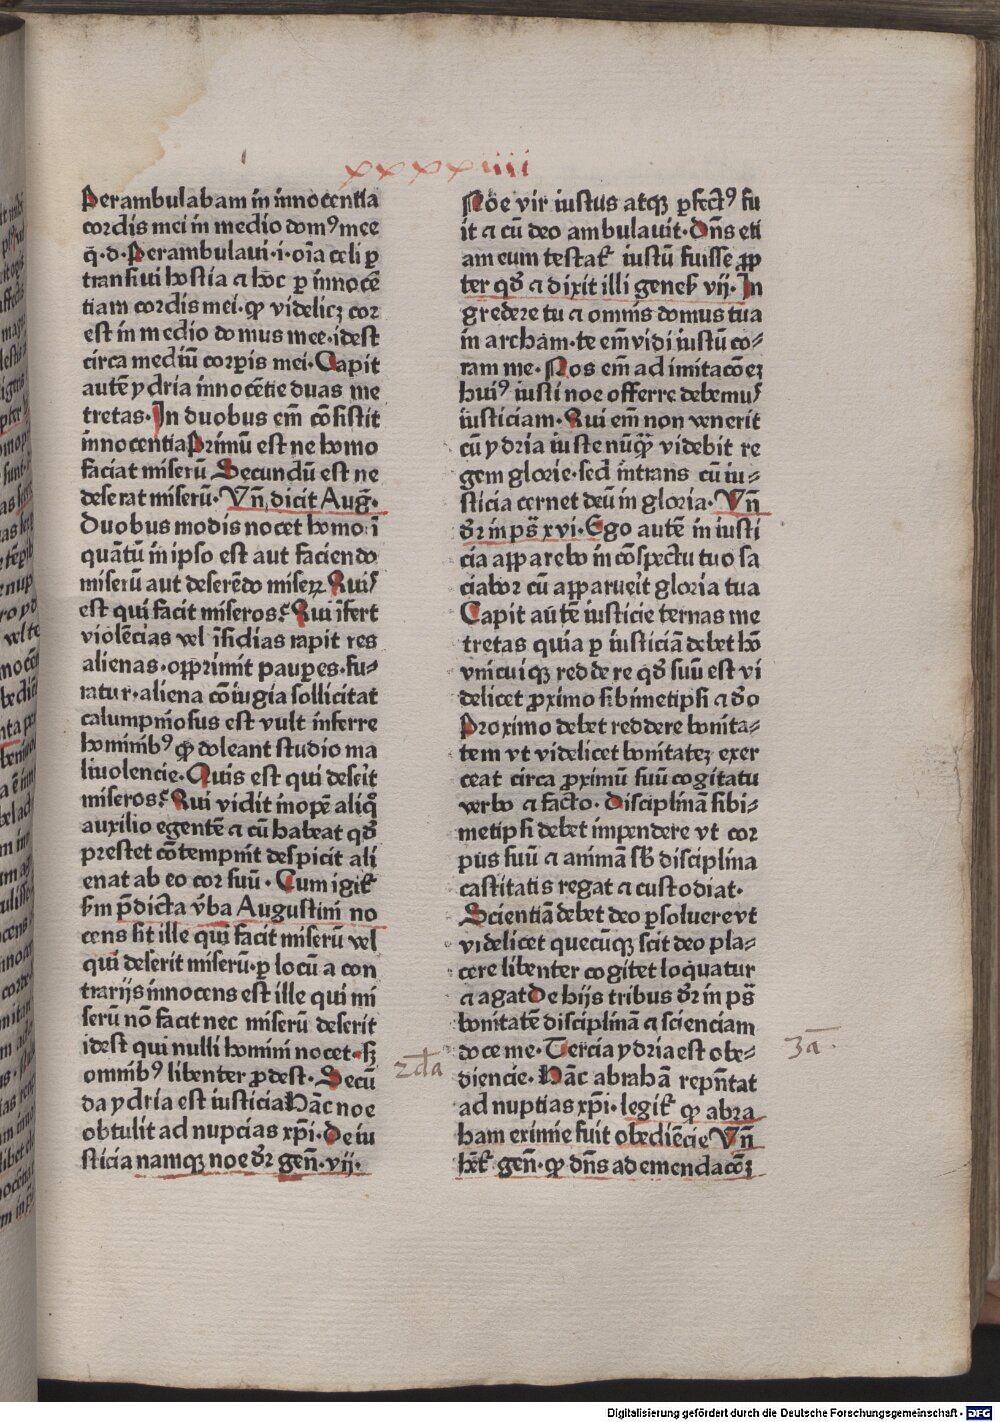 xxxxiiii
Perambulabam in innocentia
cordis mei in medio domꝰ mee
q̄·d·Perambulaui·i·oīa celi ꝑ
transiui hostia ⁊ hoc ꝑ innocē
tiam cordis mei·ꝙ videlicꝫ cor
est in medio domus mee·idest
circa mediū corꝑis mei·Capit
autē ydria innocētie duas me
tretas·In duobus em̄ cōsistit
innocentia Primū est ne homo
faciat miserū Secundū est ne
deserat miserū·Vn̄ dicit Auḡ·
Duobus modis nocet homo·ī
quātū in ipso est aut faciendo
miserū aut deserēdo miseꝝ Quis
est qui facit miseros? Qui īfert
violēcias vel īsidias rapit res
alienas·opprimit pauꝑes·fu⸗
ratur·aliena cōiugia sollicitat
calumpniosus est vult inferre
hominibꝰ ꝙ doleant studio ma
liuolencie·Quis est qui deserit
miseros? Qui vidit inopē aliq̄
auxilio egentē ⁊ cū habeat qď
prestet cōtempnit despicit ali
enat ab eo cor suū·Cum igit᷑
sm p̄dicta v̄ba Augustini no
cens sit ille qui facit miserū vel
qui deserit miserū·ꝑ locū a con
trarijs innocens est ille qui mi
serū nō facit nec miserū deserit
idest qui nulli homini nocet·sꝫ
omnibꝰ libenter ꝓdest·Secū
da ydria est iusticia Hāc noe
obtulit ad nupcias xp̄i·De iu
sticia namqꝫ noe dr̄ gen̄·vij·
2da
Noe vir iustus atqꝫ ꝑfectꝰ fu
it ⁊ cū deo ambulauit·Dn̄s eti
am eum testat᷑ iustū fuisse ꝓp
ter qď ⁊ dixit illi genes̄ vij·In
gredere tu ⁊ omnis domus tua
in archam·te em̄ vidi iustū co⸗
ram me·Nos em̄ ad imitacōeꝫ
huiꝰ iusti noe offerre debemus
iusticiam·Qui em̄ non venerit
cū ydria iuste nūq̄ videbit re
gem glorie·sed intrans cū iu⸗
sticia cernet deū in gloria·Vn̄
dr̄ in ps̄ xvi·Ego autē in iusti
cia apparebo in cōspectu tuo sa
ciabor cū apparuerit gloria tua
Capit aūtē iusticie ternas me
tretas quia ꝑ iusticiā debet hō
vnicuiqꝫ reddere qď suū est vi
delicet ꝓximo sibimetipsi ⁊ deo
Proximo debet reddere bonita⸗
tem vt videlicet bonitateꝫ exer
ceat circa ꝓximū suū cogitatu
verbo ⁊ facto·Disciplinā sibi⸗
metipsi debet impendere vt cor
pus suū ⁊ animā sb̄ disciplina
castitatis regat ⁊ custodiat·
Scientiā debet deo ꝑsoluere vt
videlicet quecūqꝫ scit deo pla⸗
cere libenter cogitet loquatur
⁊ agat De hijs tribus dr̄ in ps̄
bonitatē disciplinā ⁊ scienciam
doce me·Tercia ydria est obe⸗
diencie·Hāc abrahā repn̄tat
ad nuptias xp̄i·legit᷑ ꝙ abra
ham eximie fuit obediēcie Vn̄
het᷑ gen̄·ꝙ dn̄s ad emendacōeꝫ
3a·
Digitalisierung gefördert durch die Deutsche Forschungsgemeinschaft - DFG